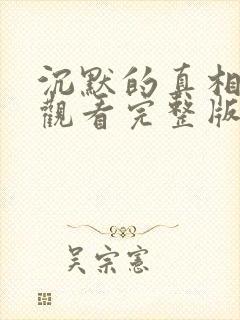 沉默的真相
觀看完整版
吴宗憲